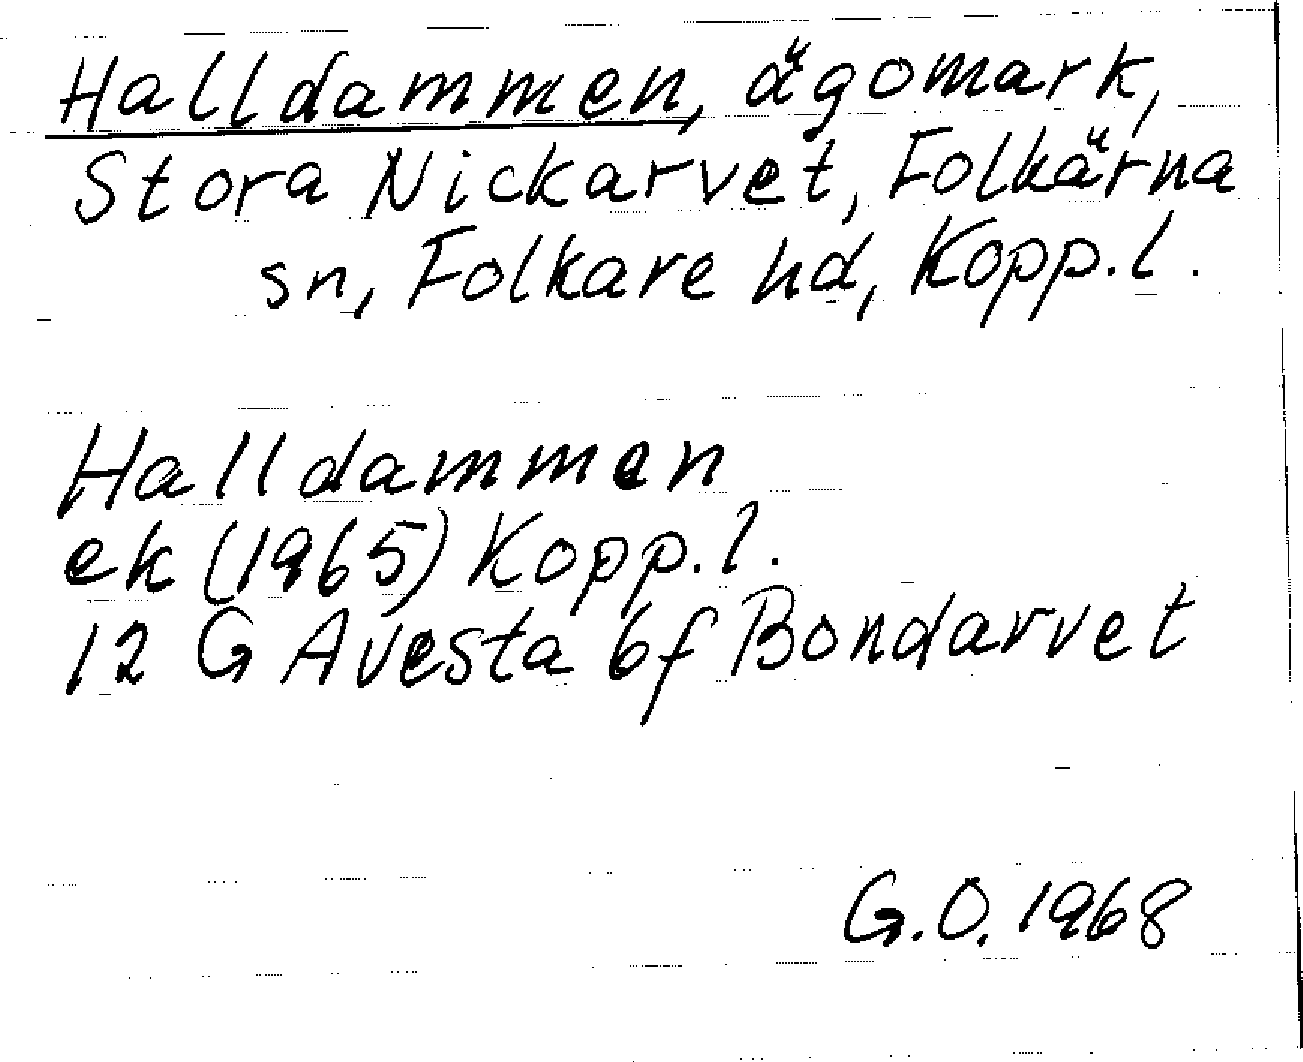 Halldammen, ägomark,
Stora Nickarvet, Folkärna
sn, Folkare hd, Kopp.l.
Halldammen
ek (1965) Kopp.l.
12 G Avesta 6f Bondarvet
G.O. 1968